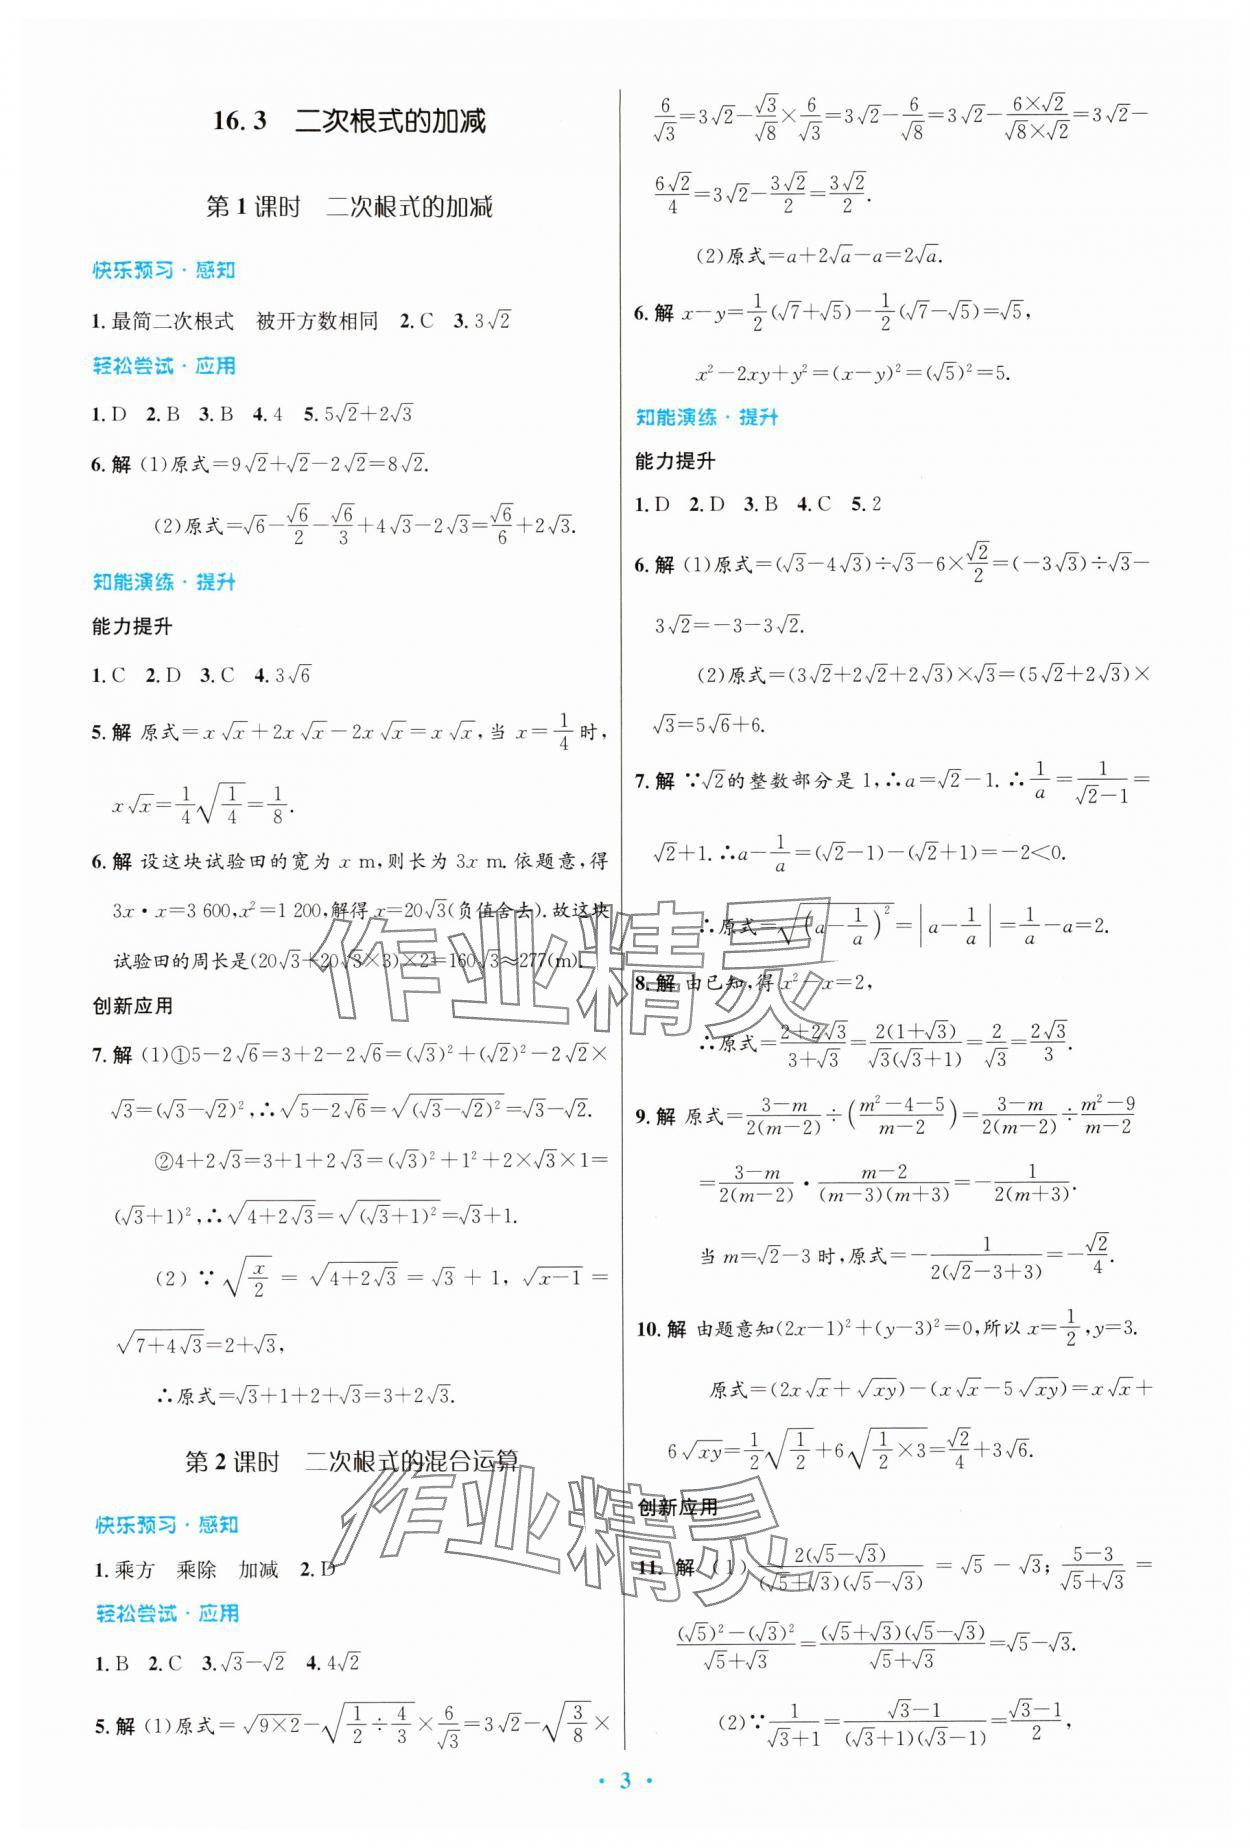 16.3 二次根式的加减
第1课时 二次根式的加减
快乐预习·感知
1.最简二次根式 被开方数相同 2.C 3.3√2
轻松尝试·应用
1.D 2.B 3.B 4.4 5.5√2+2√3
6.解 (1)原式=9√2+√2-2√2=8√2.
(2)原式=√6-√6/2-√6/3+4√3-2√3=√6/6+2√3.
知能演练·提升
能力提升
1.C 2.D 3.C 4.3√6
5.解 原式=x√x+2x√x-2x√x=x√x,当 x=1/4时,
x√x=1/4√(1/4)=1/8.
6.解 设这块试验田的宽为 x m,则长为 3x m.依题意,得
3x·x=3 600,x²=1 200,解得 x=20√3(负值舍去).故这块
试验田的周长是(20√3+20√3×3)×2=160√3≈277(m).
创新应用
7.解 (1)①5-2√6=3+2-2√6=(√3)²+(√2)²-2√2×
√3=(√3-√2)²,∴√(5-2√6)=√((√3-√2)²)=√3-√2.
②4+2√3=3+1+2√3=(√3)²+1²+2×√3×1=
(√3+1)²,∴√(4+2√3)=√((√3+1)²)=√3+1.
(2)∵√(x/2)=√(4+2√3)=√3+1,√(x-1)=
√(7+4√3)=2+√3,
∴原式=√3+1+2+√3=3+2√3.
第2课时 二次根式的混合运算
快乐预习·感知
1.乘方 乘除 加减 2.D
轻松尝试·应用
1.B 2.C 3.√3-√2 4.4√2
5.解 (1)原式=√(9×2)-√(1/2÷4/3)×6/√3=3√2-√(3/8)×
6/√3=3√2-√3/√8×6/√3=3√2-6/√8=3√2-(6×√2)/(√8×√2)=3√2-
6√2/4=3√2-3√2/2=3√2/2.
(2)原式=a+2√a-a=2√a.
6.解 x-y=1/2(√7+√5)-1/2(√7-√5)=√5,
x²-2xy+y²=(x-y)²=(√5)²=5.
知能演练·提升
能力提升
1.D 2.D 3.B 4.C 5.2
6.解 (1)原式=(√3-4√3)÷√3-6×√2/2=(-3√3)÷√3-
3√2=-3-3√2.
(2)原式=(3√2+2√2+2√3)×√3=(5√2+2√3)×
√3=5√6+6.
7.解 ∵√2的整数部分是1,∴a=√2-1.∴1/a=1/(√2-1)=
√2+1.∴a-1/a=(√2-1)-(√2+1)=-2<0.
∴原式=√((a-1/a)²)=|a-1/a|=1/a-a=2.
8.解 由已知,得 x²-x=2,
∴原式=(2+2√3)/(3+√3)=2(1+√3)/(√3(√3+1))=2/√3=2√3/3.
9.解 原式=(3-m)/(2(m-2))÷((m²-4-5)/(m-2))=(3-m)/(2(m-2))÷(m²-9)/(m-2)
=(3-m)/(2(m-2))·(m-2)/((m-3)(m+3))=-1/(2(m+3)).
当 m=√2-3时,原式=-1/(2(√2-3+3))=-√2/4.
10.解 由题意知(2x-1)²+(y-3)²=0,所以 x=1/2,y=3.
原式=(2x√x+√(xy))-(x√x-5√(xy))=x√x+
6√(xy)=1/2√(1/2)+6√(1/2×3)=√2/4+3√6.
创新应用
11.解 (1)2(√5-√3)/((√5+√3)(√5-√3))=√5-√3;(5-3)/(√5+√3)=
((√5)²-(√3)²)/(√5+√3)=(√5+√3)(√5-√3)/(√5+√3)=√5-√3.
(2)∵1/(√3+1)=(√3-1)/((√3+1)(√3-1))=(√3-1)/2,
·3·
作业精灵
作业精灵